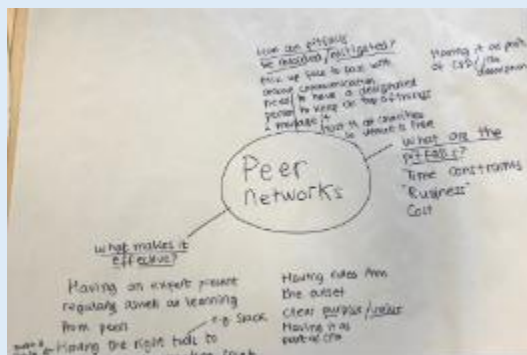 How can pitfalls
be avoided/mitigated?
Mix up face to face with
online communication
Need to have a designated
person to keep on top of things
& manage it
host it at charities
so venue is free
Having it as part
of CPD/
description
What are the
pitfalls?
Time constraints
"Busyness"
Cost
Peer
networks
What makes it
effective?
Having an expert present
regularly aswell as learning
from peers
e.g. Slack
Having the right tools to
Having rules from
the outset
clear purpose/value
Having it as
part of CPD